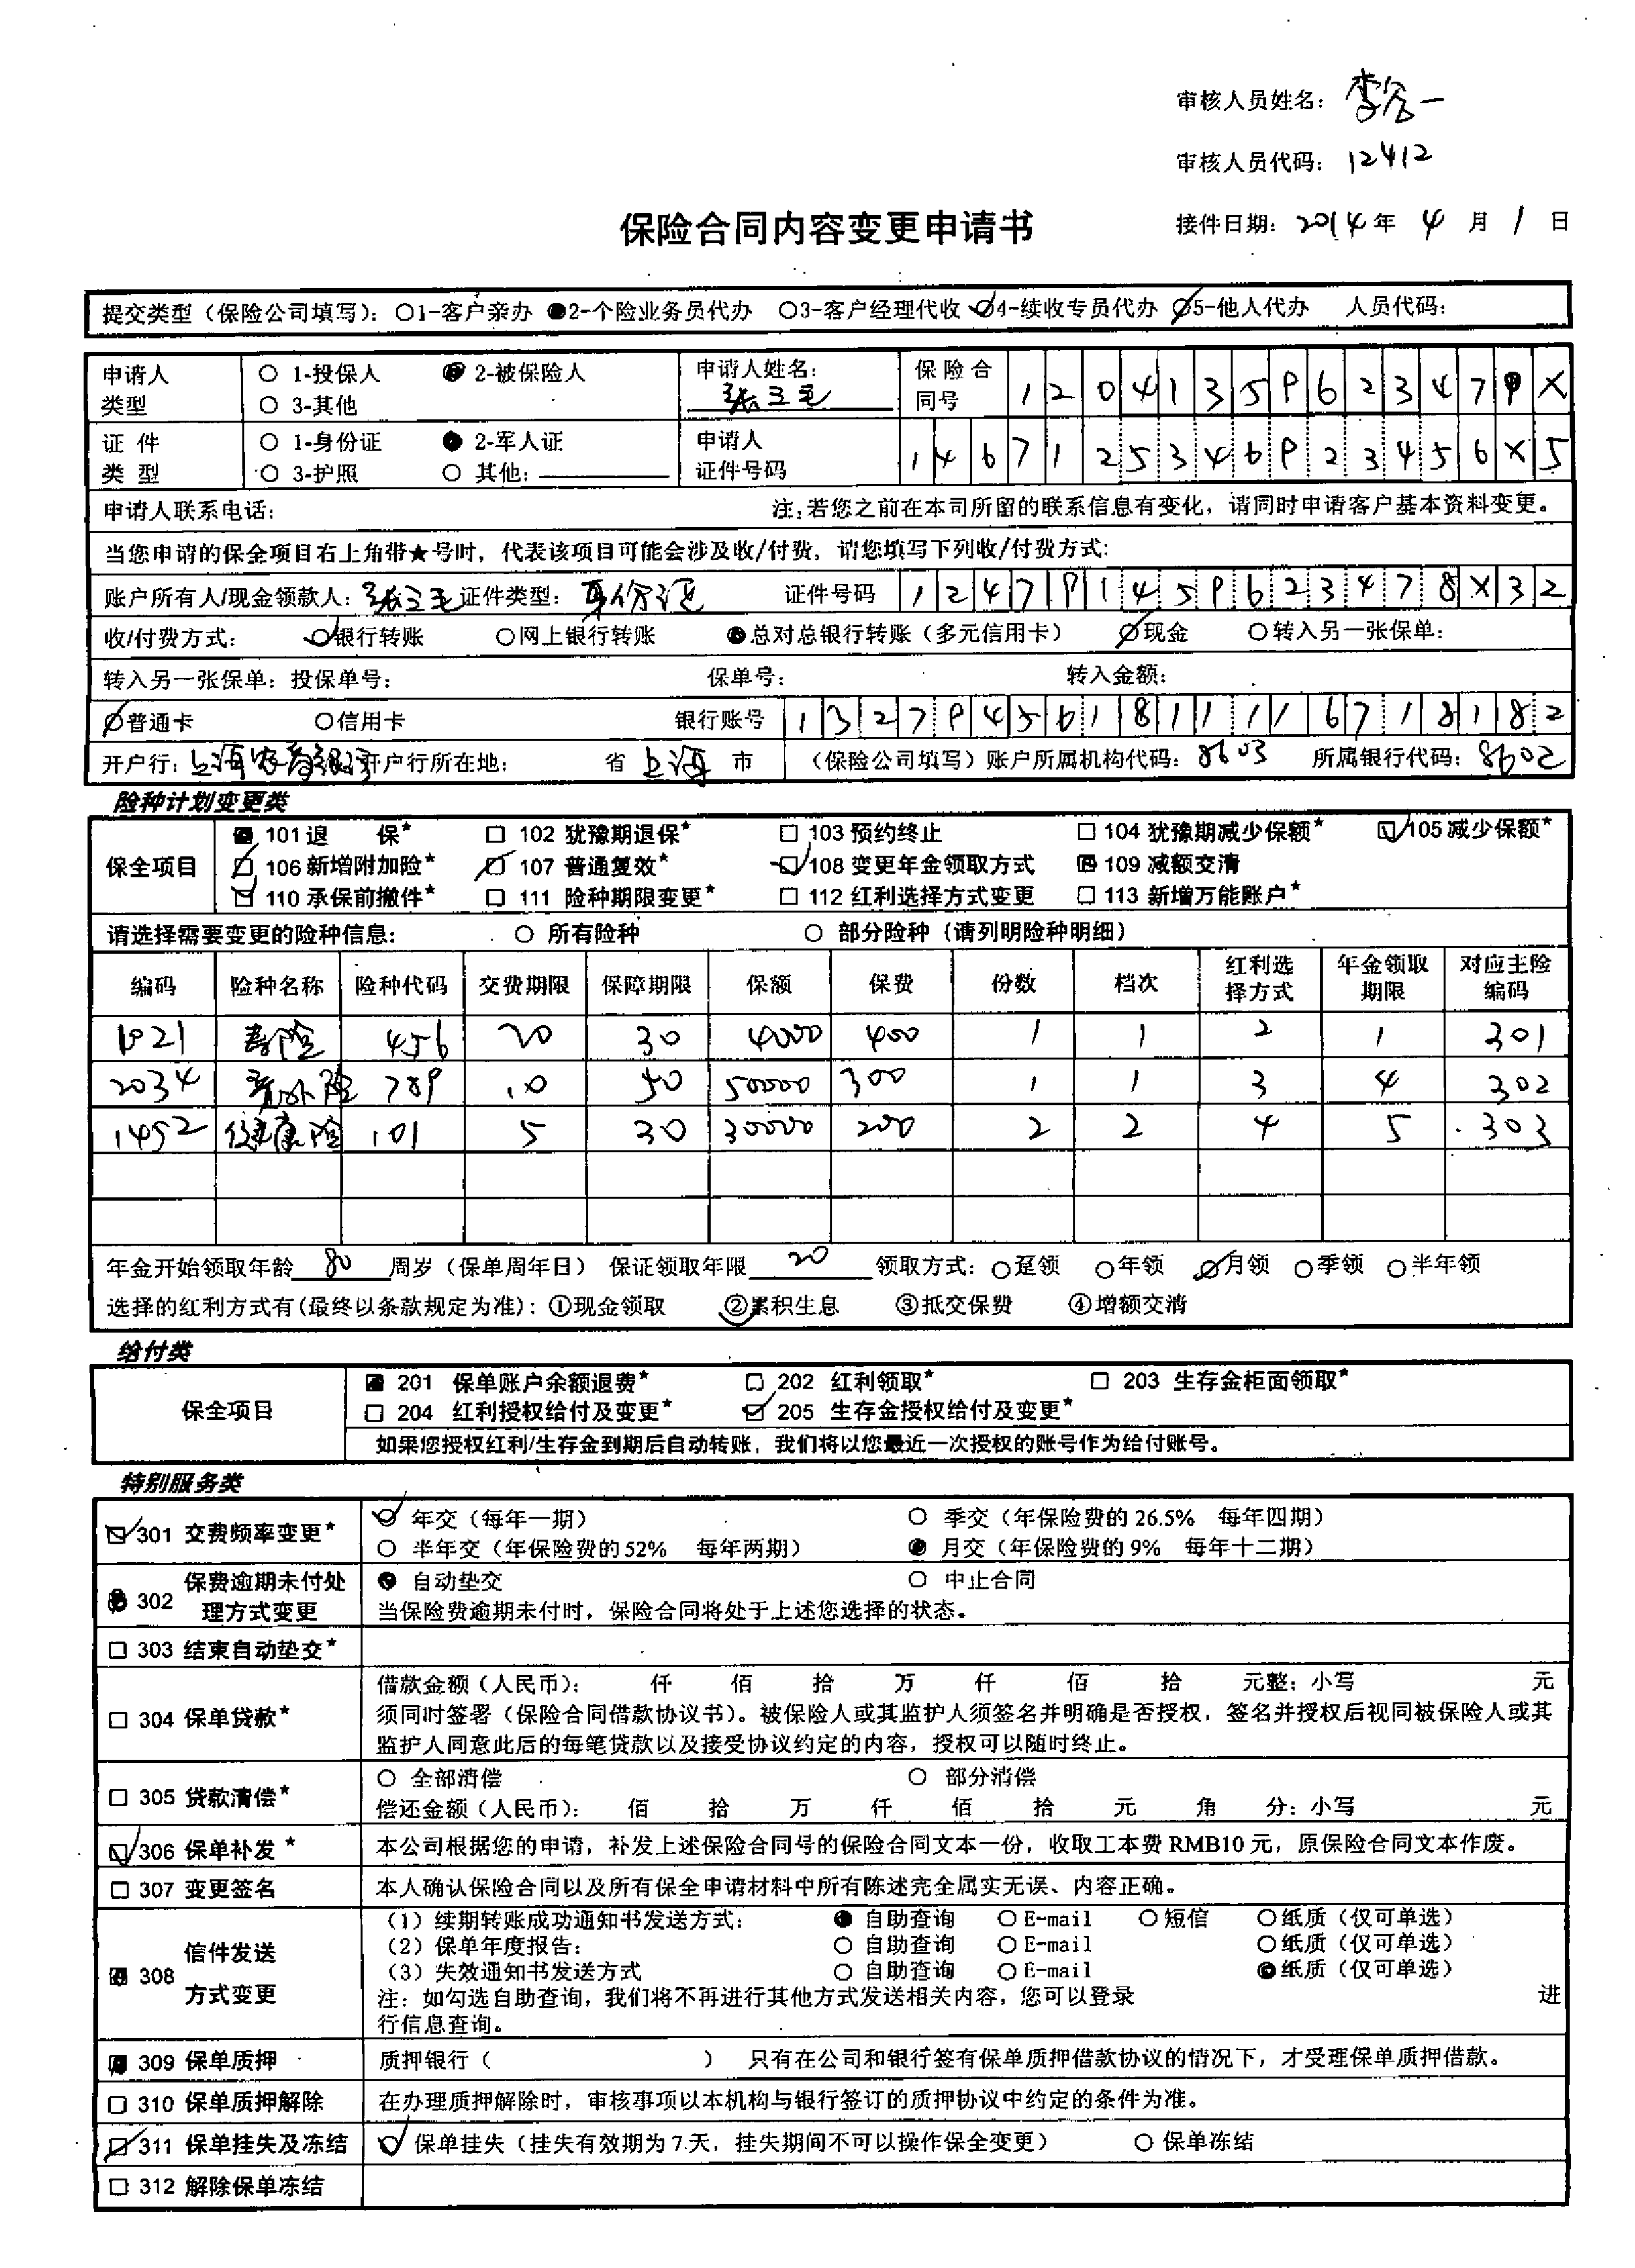 审核人员姓名：李谷一
审核人员代码：12412
保险合同内容变更申请书
接件日期：2014年 4 月 1 日
提交类型（保险公司填写）：○1-客户亲办 ●2-个险业务员代办 ○3-客户经理代收 ○4-续收专员代办 ○5-他人代办 人员代码：
申请人类型 ○ 1-投保人 ● 2-被保险人 ○ 3-其他 申请人姓名：张三毛 保险合同号 1204135962347 X
证件类型 ○ 1-身份证 ● 2-军人证 ○ 3-护照 ○ 其他： 申请人证件号码 1467125346923456X5
申请人联系电话： 注：若您之前在本司所留的联系信息有变化，请同时申请客户基本资料变更。
当您申请的保全项目右上角带★号时，代表该项目可能会涉及收/付费，请您填写下列收/付费方式：
账户所有人/现金领款人：张三毛 证件类型：身份证 证件号码 124791459623478X32
收/付费方式： ○银行转账 ○网上银行转账 ●总对总银行转账（多元信用卡） ○现金 ○转入另一张保单：
转入另一张保单：投保单号： 保单号： 转入金额：
○普通卡 ○信用卡 银行账号
开户行：上海 开户行所在地： 省 上海 市 （保险公司填写）账户所属机构代码：8603 所属银行代码：8602
险种计划变更类
保全项目
101 退 保★ □ 102 犹豫期退保★ □ 103 预约终止 □ 104 犹豫期减少保额★ 105 减少保额★
106 新增附加险★ 107 普通复效★ 108 变更年金领取方式 109 减额交清
110 承保前撤件★ □ 111 险种期限变更★ □ 112 红利选择方式变更 □ 113 新增万能账户★
请选择需要变更的险种信息： ○ 所有险种 ○ 部分险种（请列明险种明细）
编码 险种名称 险种代码 交费期限 保障期限 保额 保费 份数 档次 红利选择方式 年金领取期限 对应主险编码
1021 寿险 456 20 30 4000 400 1 1 2 1 301
2034 意外险 789 10 50 50000 300 1 1 3 4 302
1452 健康险 101 5 30 30000 200 2 2 4 5 303
年金开始领取年龄 80 周岁（保单周年日） 保证领取年限 20 领取方式：○趸领 ○年领 ○月领 ○季领 ○半年领
选择的红利方式有(最终以条款规定为准)：①现金领取 ②累积生息 ③抵交保费 ④增额交清
给付类
保全项目
201 保单账户余额退费★ □ 202 红利领取★ □ 203 生存金柜面领取★
□ 204 红利授权给付及变更★ 205 生存金授权给付及变更★
如果您授权红利/生存金到期后自动转账，我们将以您最近一次授权的账号作为给付账号。
特别服务类
301 交费频率变更★ 年交（每年一期） ○ 季交（年保险费的 26.5% 每年四期）
○ 半年交（年保险费的 52% 每年两期） ● 月交（年保险费的 9% 每年十二期）
302 保费逾期未付处理方式变更 ● 自动垫交 ○ 中止合同
当保险费逾期未付时，保险合同将处于上述您选择的状态。
□ 303 结束自动垫交★
□ 304 保单贷款★ 借款金额（人民币）： 仟 佰 拾 万 仟 佰 拾 元整；小写 元
须同时签署（保险合同借款协议书）。被保险人或其监护人须签名并明确是否授权，签名并授权后视同被保险人或其
监护人同意此后的每笔贷款以及接受协议约定的内容，授权可以随时终止。
□ 305 贷款清偿★ ○ 全部清偿 ○ 部分清偿
偿还金额（人民币）： 佰 拾 万 仟 佰 拾 元 角 分：小写 元
306 保单补发 ★ 本公司根据您的申请，补发上述保险合同号的保险合同文本一份，收取工本费 RMB10 元，原保险合同文本作废。
□ 307 变更签名 本人确认保险合同以及所有保全申请材料中所有陈述完全属实无误、内容正确。
308 信件发送方式变更 （1）续期转账成功通知书发送方式： ● 自助查询 ○ E-mail ○ 短信 ○纸质（仅可单选）
（2）保单年度报告： ○ 自助查询 ○ E-mail ○纸质（仅可单选）
（3）失效通知书发送方式 ○ 自助查询 ○ E-mail ●纸质（仅可单选）
注：如勾选自助查询，我们将不再进行其他方式发送相关内容，您可以登录 进
行信息查询。
309 保单质押 质押银行（ ） 只有在公司和银行签有保单质押借款协议的情况下，才受理保单质押借款。
□ 310 保单质押解除 在办理质押解除时，审核事项以本机构与银行签订的质押协议中约定的条件为准。
311 保单挂失及冻结 保单挂失（挂失有效期为 7 天，挂失期间不可以操作保全变更） ○ 保单冻结
□ 312 解除保单冻结